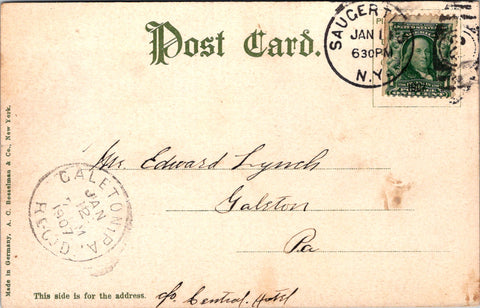 Post Card.
SAUGERT
JAN 1
630PM
N.Y.
Mr. Edward Lynch
Galeton
Pa
c/o Central Hotel
GALETON, PA.
JAN
12
M
1907
REC'D
This side is for the address.
Made in Germany. A. C. Bosselman & Co., New York.